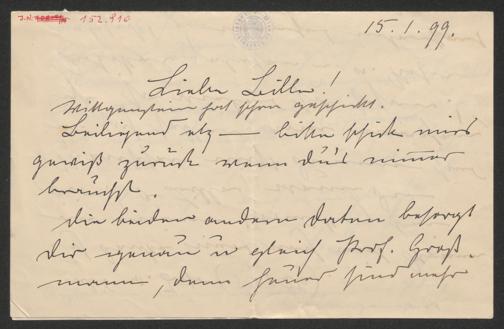 J.N. 152.910
15.1.99.
Liebe Bille!
Wittgenstein hat schon geschickt.
Beiliegend etz — bitte schick mirs
gewiß zurück wenn du's nimmer
brauchst.
Die beiden andern Daten besorgt
Dir genau u gleich Prof. Groß-
mann, denn heuer sind mehr